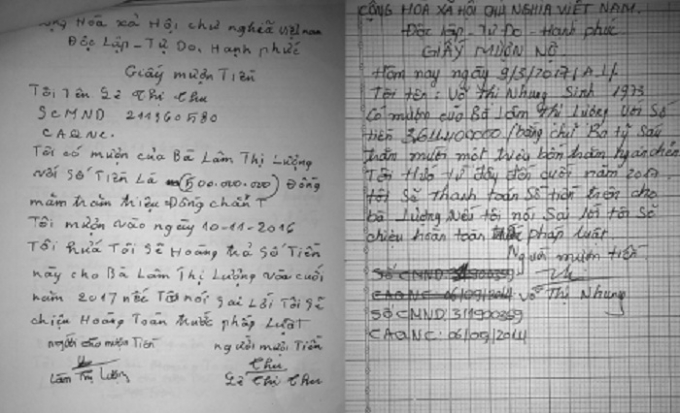 Cộng Hòa xã Hội chủ nghĩa Việt nam
Độc Lập - Tử Do, Hạnh phúc
Giấy mượn Tiền
Tôi Tên Lê Thị Thu
SCMND 211960580
CAQNC.
Tôi có mượn của Bà Lâm Thị Lượng
với Số Tiền Là (500.000.000) Đồng
năm trăm triệu Đồng chẵn
Tôi mượn vào ngày 10-11-2016
Tôi hứa Tôi Sẽ Hoàng trả Số Tiền
này cho Bà Lâm Thị Lượng vào cuối
năm 2017 nếu Tôi nói Sai Lời Tôi Sẽ
chiệu Hoàng Toàn trước pháp Luật
người cho mượn Tiền người mượn Tiền
Lâm Thị Lượng Thu
Lê Thị Thu
CỘNG HÒA XÃ HỘI CHỦ NGHĨA VIỆT NAM.
Độc lập - Tự Do - Hạnh phúc
GIẤY MƯỢN NỢ
Hôm nay ngày 9/5/2017/ A.L/.
Tôi tên: Võ Thị Nhung Sinh 1973
Có mượn của Bà Lâm Thị Lượng với Số
tiền 3.611.400.000/ bằng chữ Ba tỷ Sáu
trăm mười một triệu bốn trăm ngàn chẵn
Tôi Hứa từ đây đến cuối năm 2017
tôi Sẽ Thanh toán Số tiền trên cho
bà Lượng nếu tôi nói Sai lời tôi Sẽ
chiệu hoàn toàn trước pháp luật
Người mượn tiền
Số CMND
CAQNC 06/09/2014 Võ Thị Nhung
SỐ CMND: 311900359
CAQNC: 06/09/2014